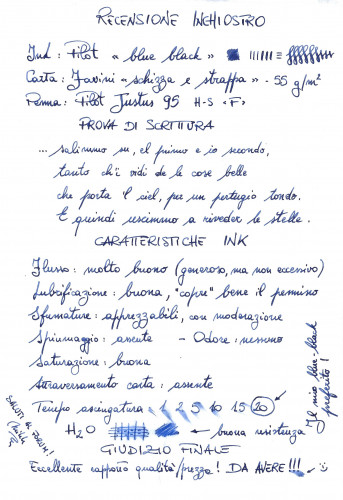 RECENSIONE INCHIOSTRO
Ink : Pilot « blue black »
Carta : Favini « schizza e strappa » - 55 g/m²
Penna : Pilot Justus 95 H-S «F»
PROVA DI SCRITTURA
... salimmo su, el primo e io secondo,
tanto ch'i vidi de le cose belle
che porta 'l ciel, per un pertugio tondo.
E quindi uscimmo a riveder le stelle.
CARATTERISTICHE INK
Flusso : molto buono (generoso, ma non eccessivo)
Lubrificazione : buona, "copre" bene il pennino
Sfumature : apprezzabili, con moderazione
Spiumaggio : assente - Odore : nessuno
Saturazione : buona
Attraversamento carta : assente
Tempo asciugatura 1 2 5 10 15 20
H2O buona resistenza
GIUDIZIO FINALE
Eccellente rapporto qualità/prezzo! DA AVERE!!!
Il mio blue-black preferito!
SALUTI AL FORUM!